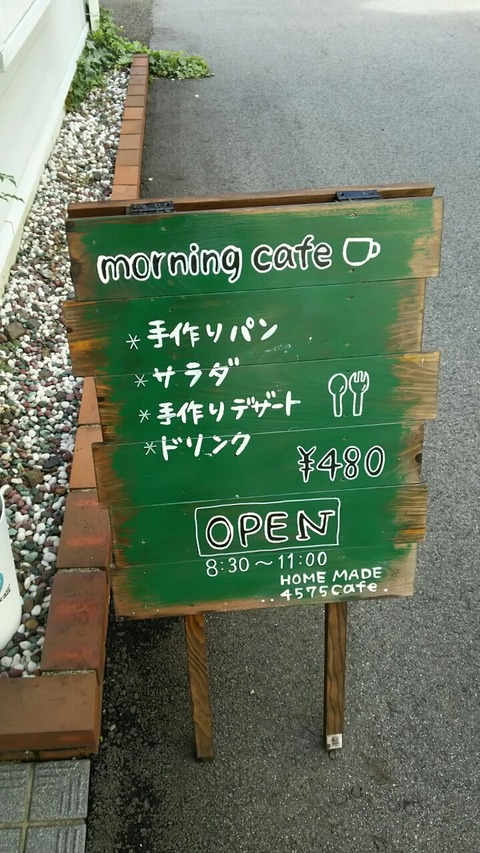 morning cafe
*手作りパン
*サラダ
*手作りデザート
*ドリンク
¥480
OPEN
8:30～11:00
HOME MADE
4575Cafe.